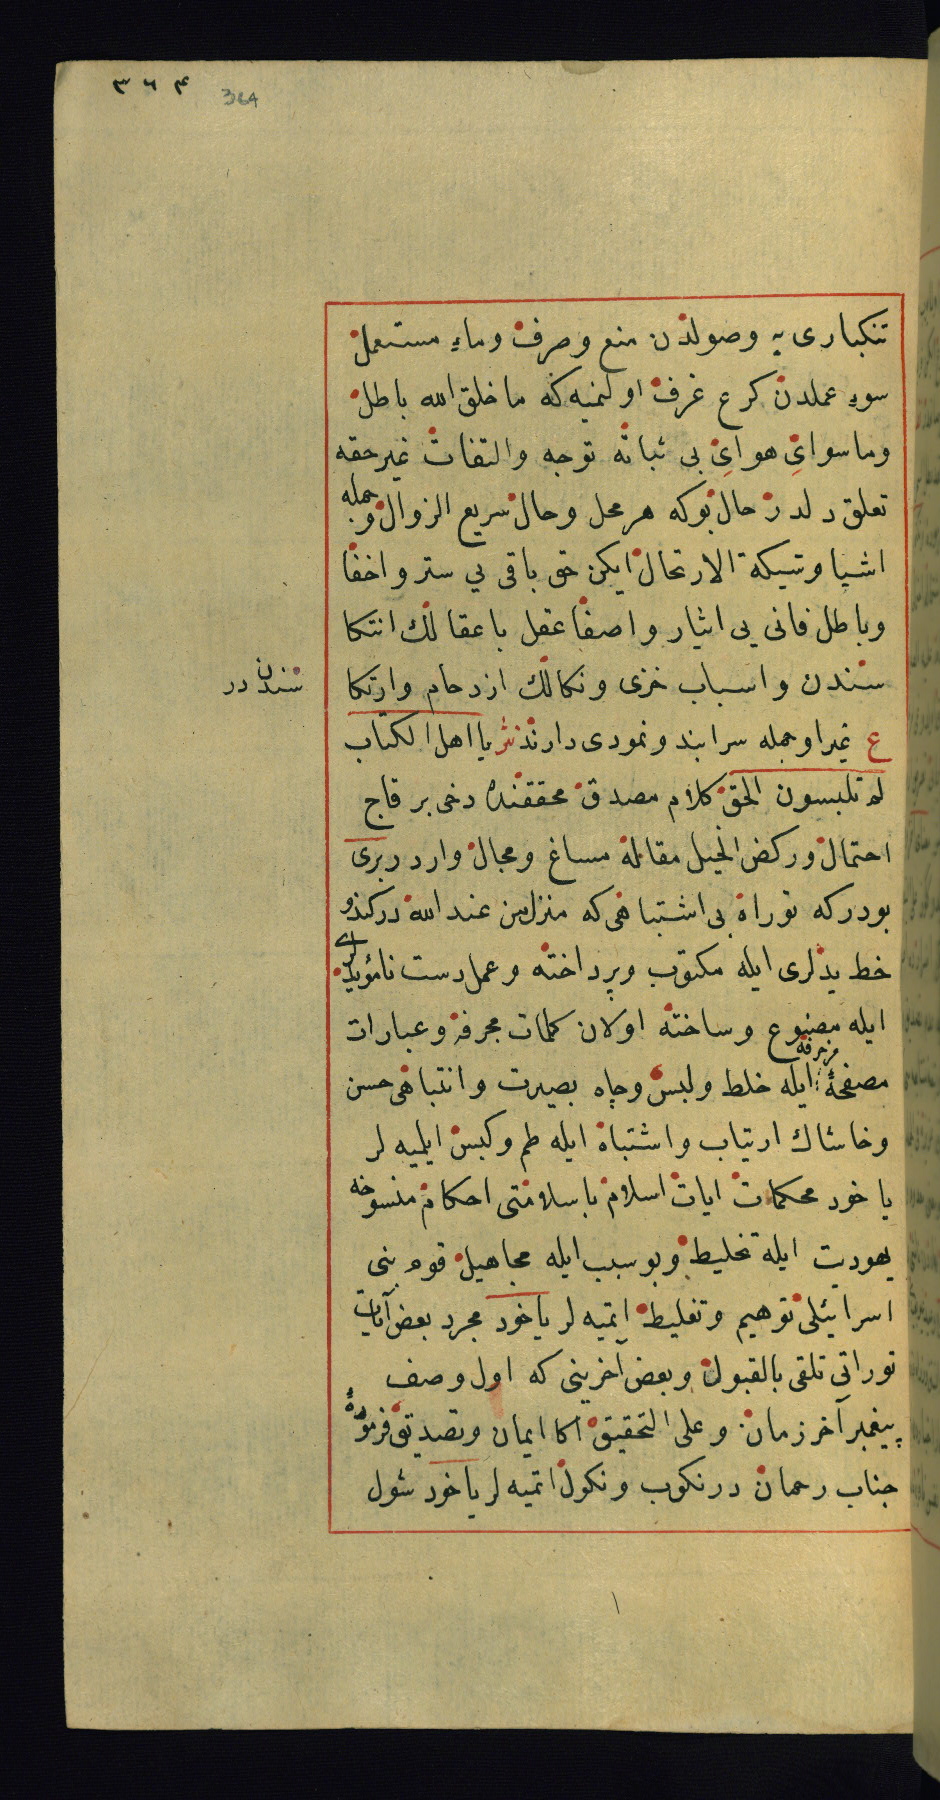 ۳۶۴
364
تنکباری یه وصولدن منع وصرف وماء مستعمل
سوء عملدن کرع غرف اولنمیه که ما خلق الله باطل
وما سوای هوای بی ثباته توجه والتفات غیر حقه
تعلق دلدر حال بوکه هر محل وحال سریع الزوال وجمله
اشیا وشیکة الارتحال ایکن حق باقی یی ستر واخفا
وباطل فانی یی ایثار واصفا عقل با عقالك انتکا
سندن واسباب خزی ونکالك ازدحام وارتکا
سندن در
ع غیر او جمله سرابند ونمودی دارند نثر یا اهل الکتاب
لم تلبسون الحق کلام مصدق محققنده دخی بر قاچ
احتمال ورکض الخیل مقاله مساغ ومجال وارد ر بری
بودر که توراة بی اشتباهی که منزل من عند الله در کندو
خط یدلری ایله مکتوب وپرداخته وعمل دست نامؤیدلری
ایله مصنوع وساخته اولان کلمات محرفه وعبارات
مصفحۀ مزخرفه ایله خلط ولبس وچاه بصیرت وانتباهی حسن
وخاشاك ارتیاب واشتباه ایله طم وکبس ایلیه لر
یاخود محکمات ایات اسلام با سلامتی احکام منسوخه
یهودیت ایله تخلیط وبو سبب ایله مجاهیل قوم بنی
اسرائیلی توهیم وتغلیط اتمیه لر یاخود مجرد بعض آیات
توراتی تلقی بالقبول وبعض آخرینی که اول وصف
پیغمبر آخر زمان وعلی التحقیق اکا ایمان وتصدیق فرمودۀ
جناب رحمان در نکوب ونکول اتمیه لر یاخود شول